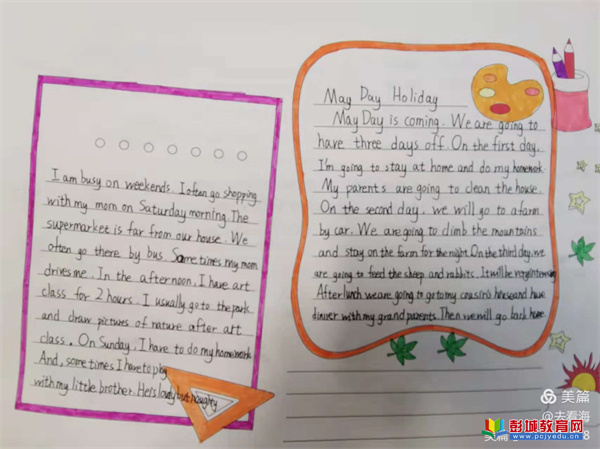 I am busy on weekends. I often go shopping
with my mom on Saturday morning. The
supermarket is far from our house. We
often go there by bus. Sometimes my mom
drives me. In the afternoon, I have art
class for 2 hours. I usually go to the park
and draw pictures of nature after art
class. On Sunday, I have to do my homework
And, sometimes I have to play
with my little brother. He is lovely but naughty
May Day Holiday
May Day is coming. We are going to
have three days off. On the first day,
I'm going to stay at home and do my homework
My parents are going to clean the house.
On the second day, we will go to a farm
by car. We are going to climb the mountains
and stay on the farm for the night. On the third day, we
are going to feed the sheep and rabbits. It will be very interesting
After lunch we are going to go to my cousin's house and have
dinner with my grandparents. Then we will go back home.
美篇
@去看海
彭城教育网
www.pcjyedu.cn
8